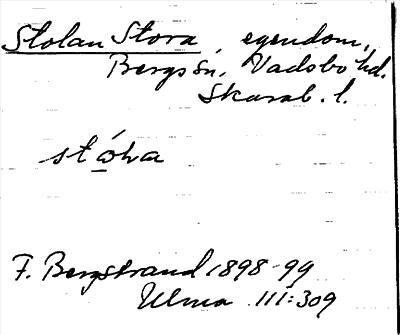 Stolan Stora, egendom,
Bergs sn, Vadsbo hd.
Skarab. l.
stó̲ha
F. Bergstrand 1898-99
Ulma III:309